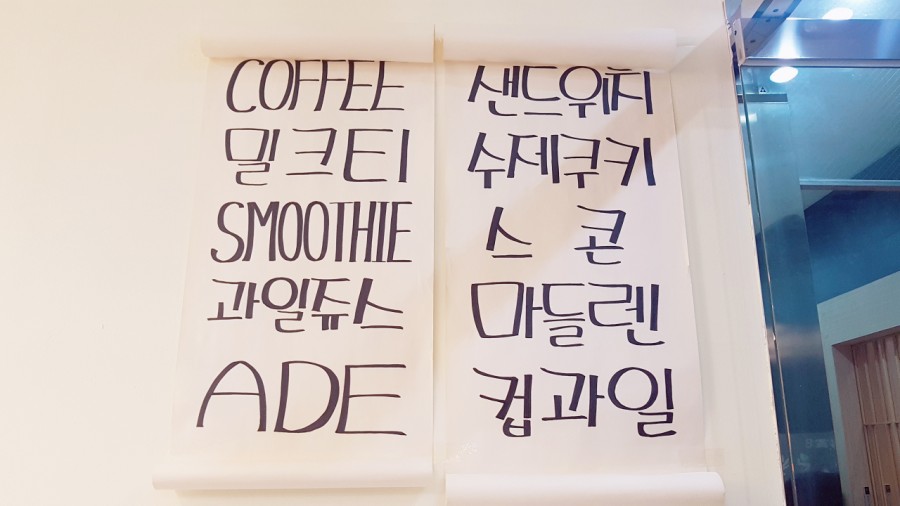 COFFEE
밀크티
SMOOTHIE
과일쥬스
ADE
샌드위치
수제쿠키
스콘
마들렌
컵과일